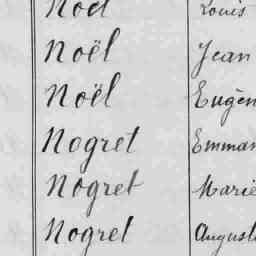 Noël Louis
Noël Jean
Noël Eugèn
Nogret Emman
Nogret Marie
Nogret August